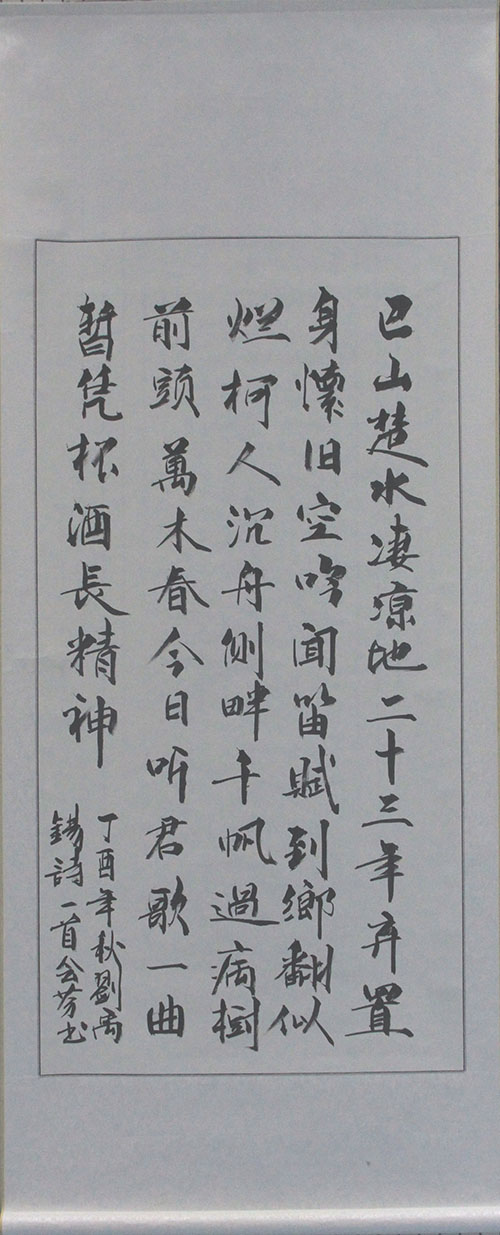 巴山楚水凄凉地二十三年弃置
身懷旧空吟闻笛賦到鄉翻似
烂柯人沉舟側畔千帆過病樹
前頭萬木春今日听君歌一曲
暂凭杯酒長精神
丁酉年秋劉禹
錫詩一首会芳书